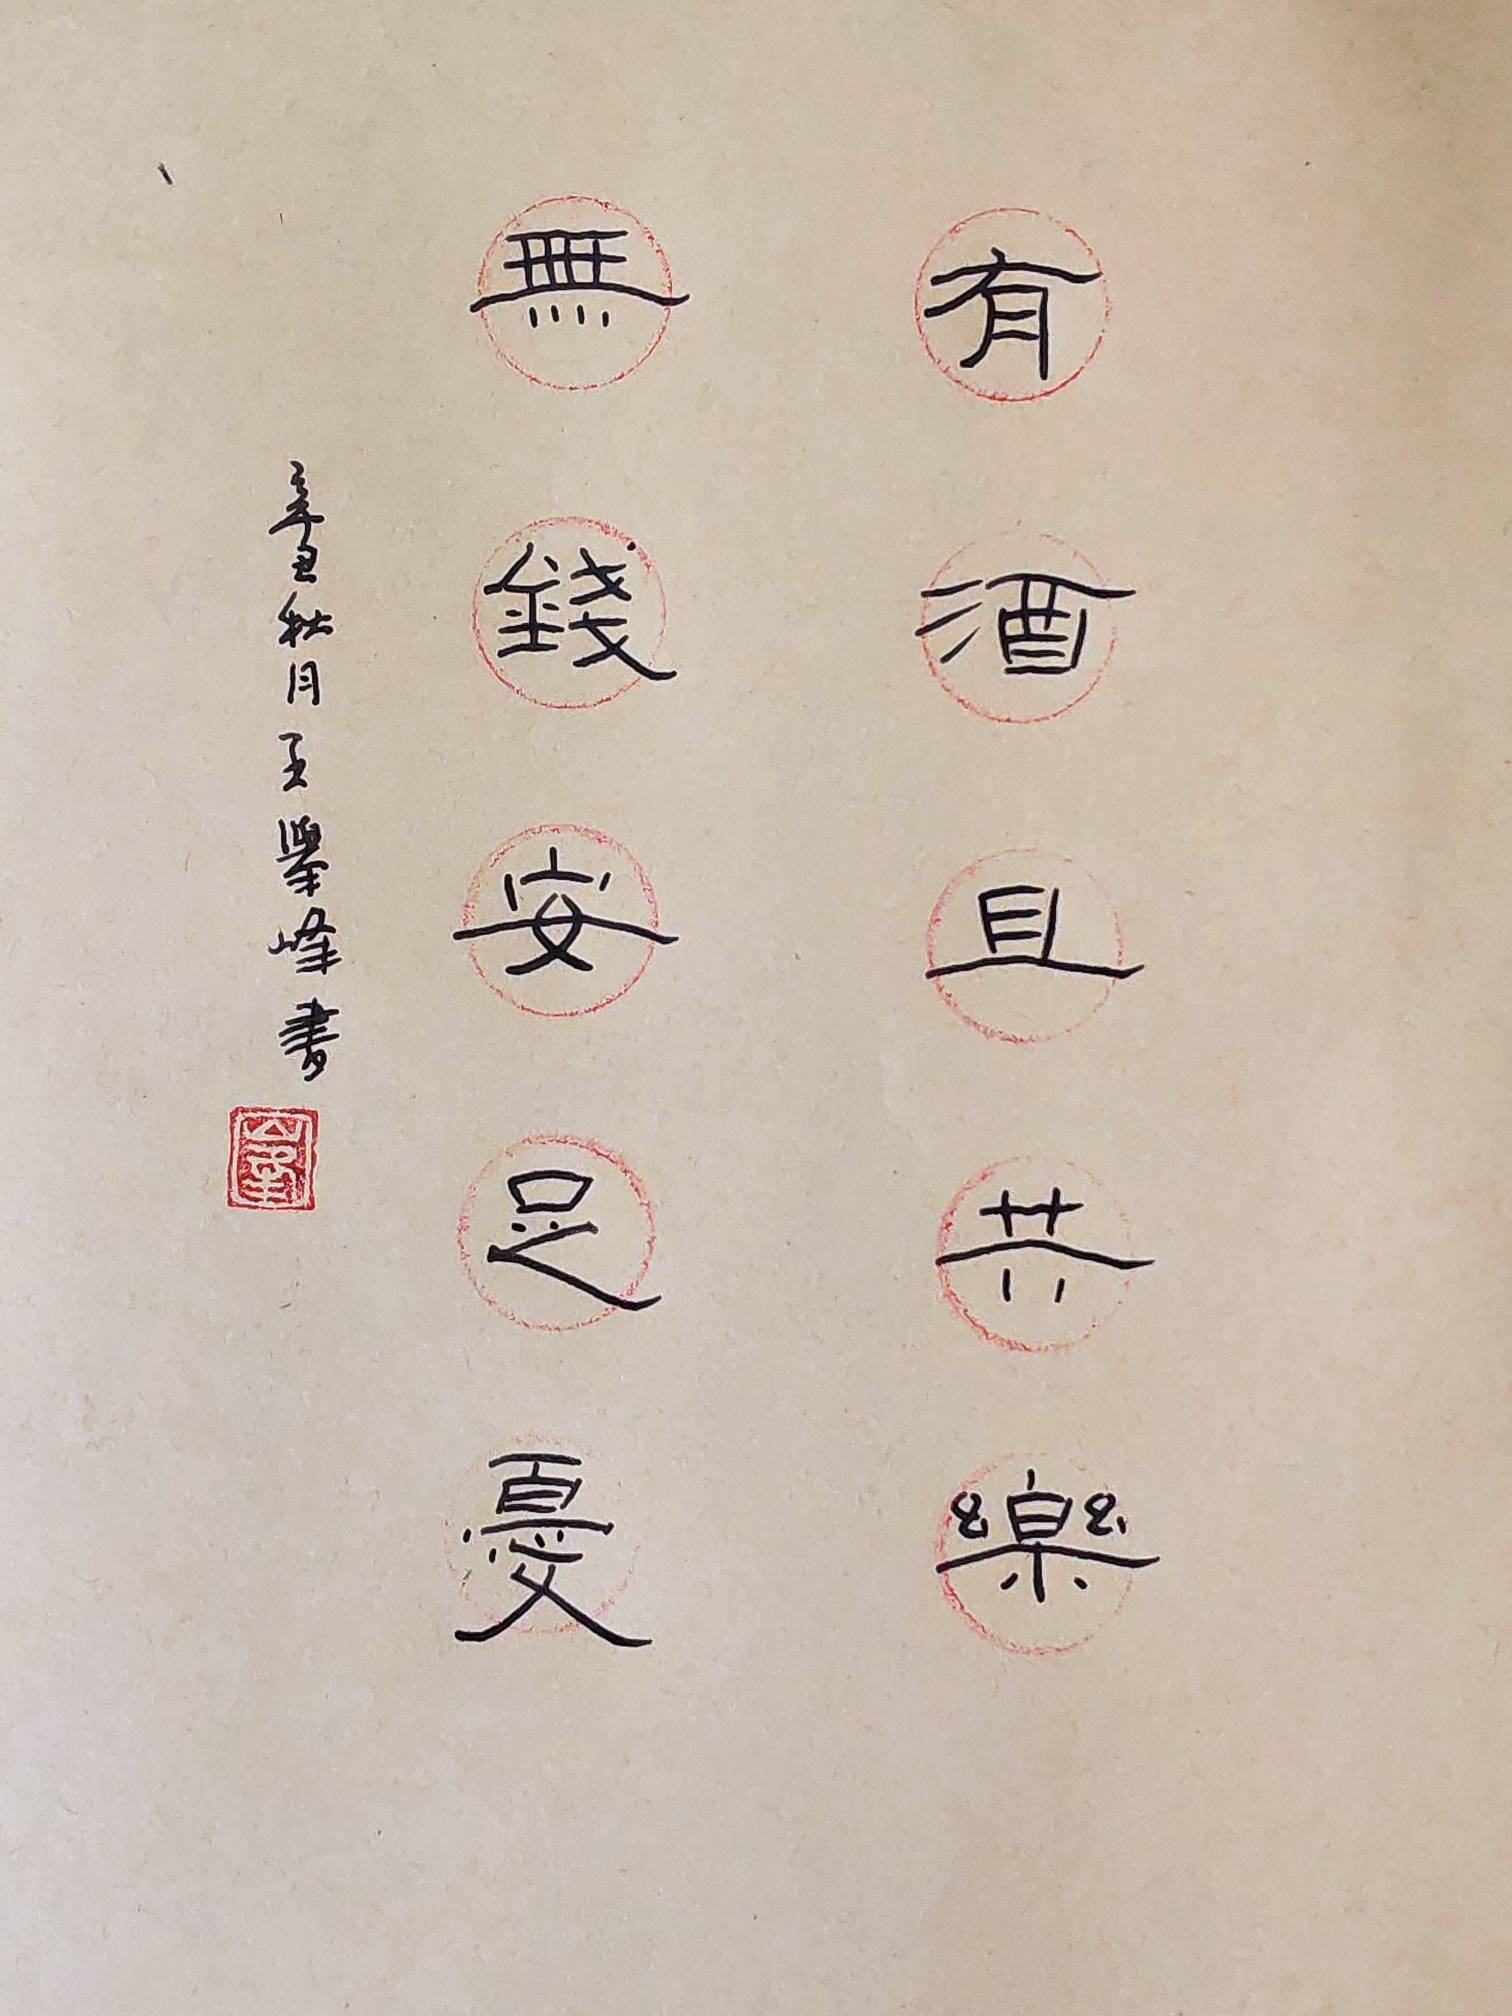 有酒且共樂
無錢安足憂
辛丑秋月王舉峰書
峯